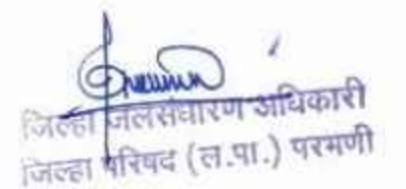 जिल्हा जलसंधारण अधिकारी
जिल्हा परिषद (ल.पा.) परभणी